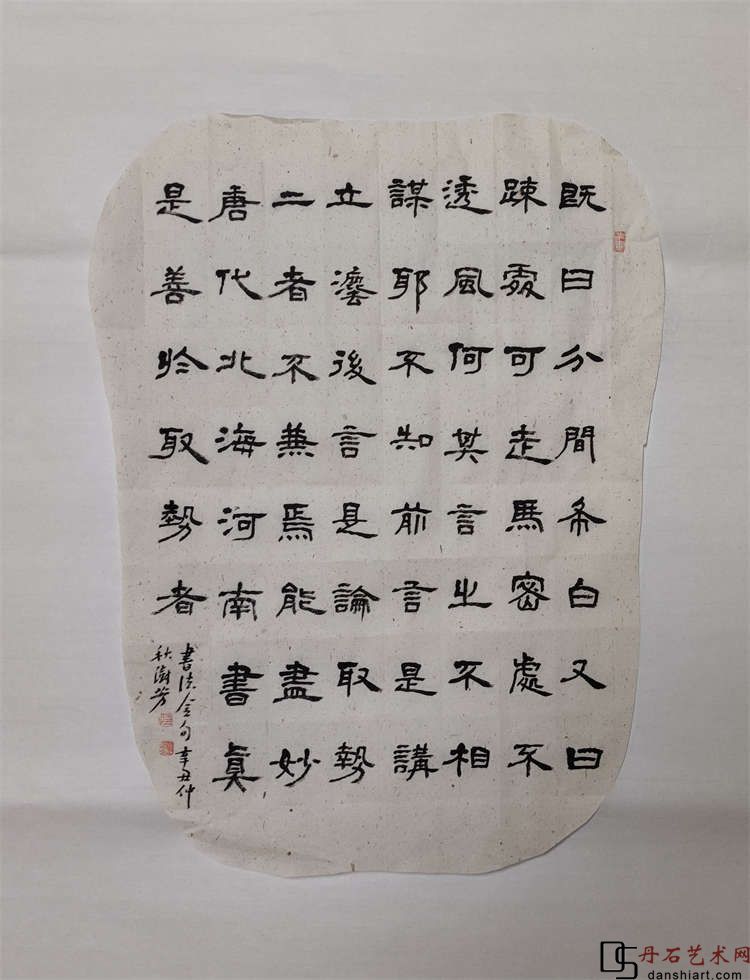 既曰分間布白又曰
疎處可走馬密處不
透風何其言之不相
謀耶不知前言是講
立灋後言是論取勢
二者不兼焉能盡妙
唐代北海河南書真
是善於取勢者
書法金句辛丑仲
秋澍芳
丹石艺术网
danshiart.com